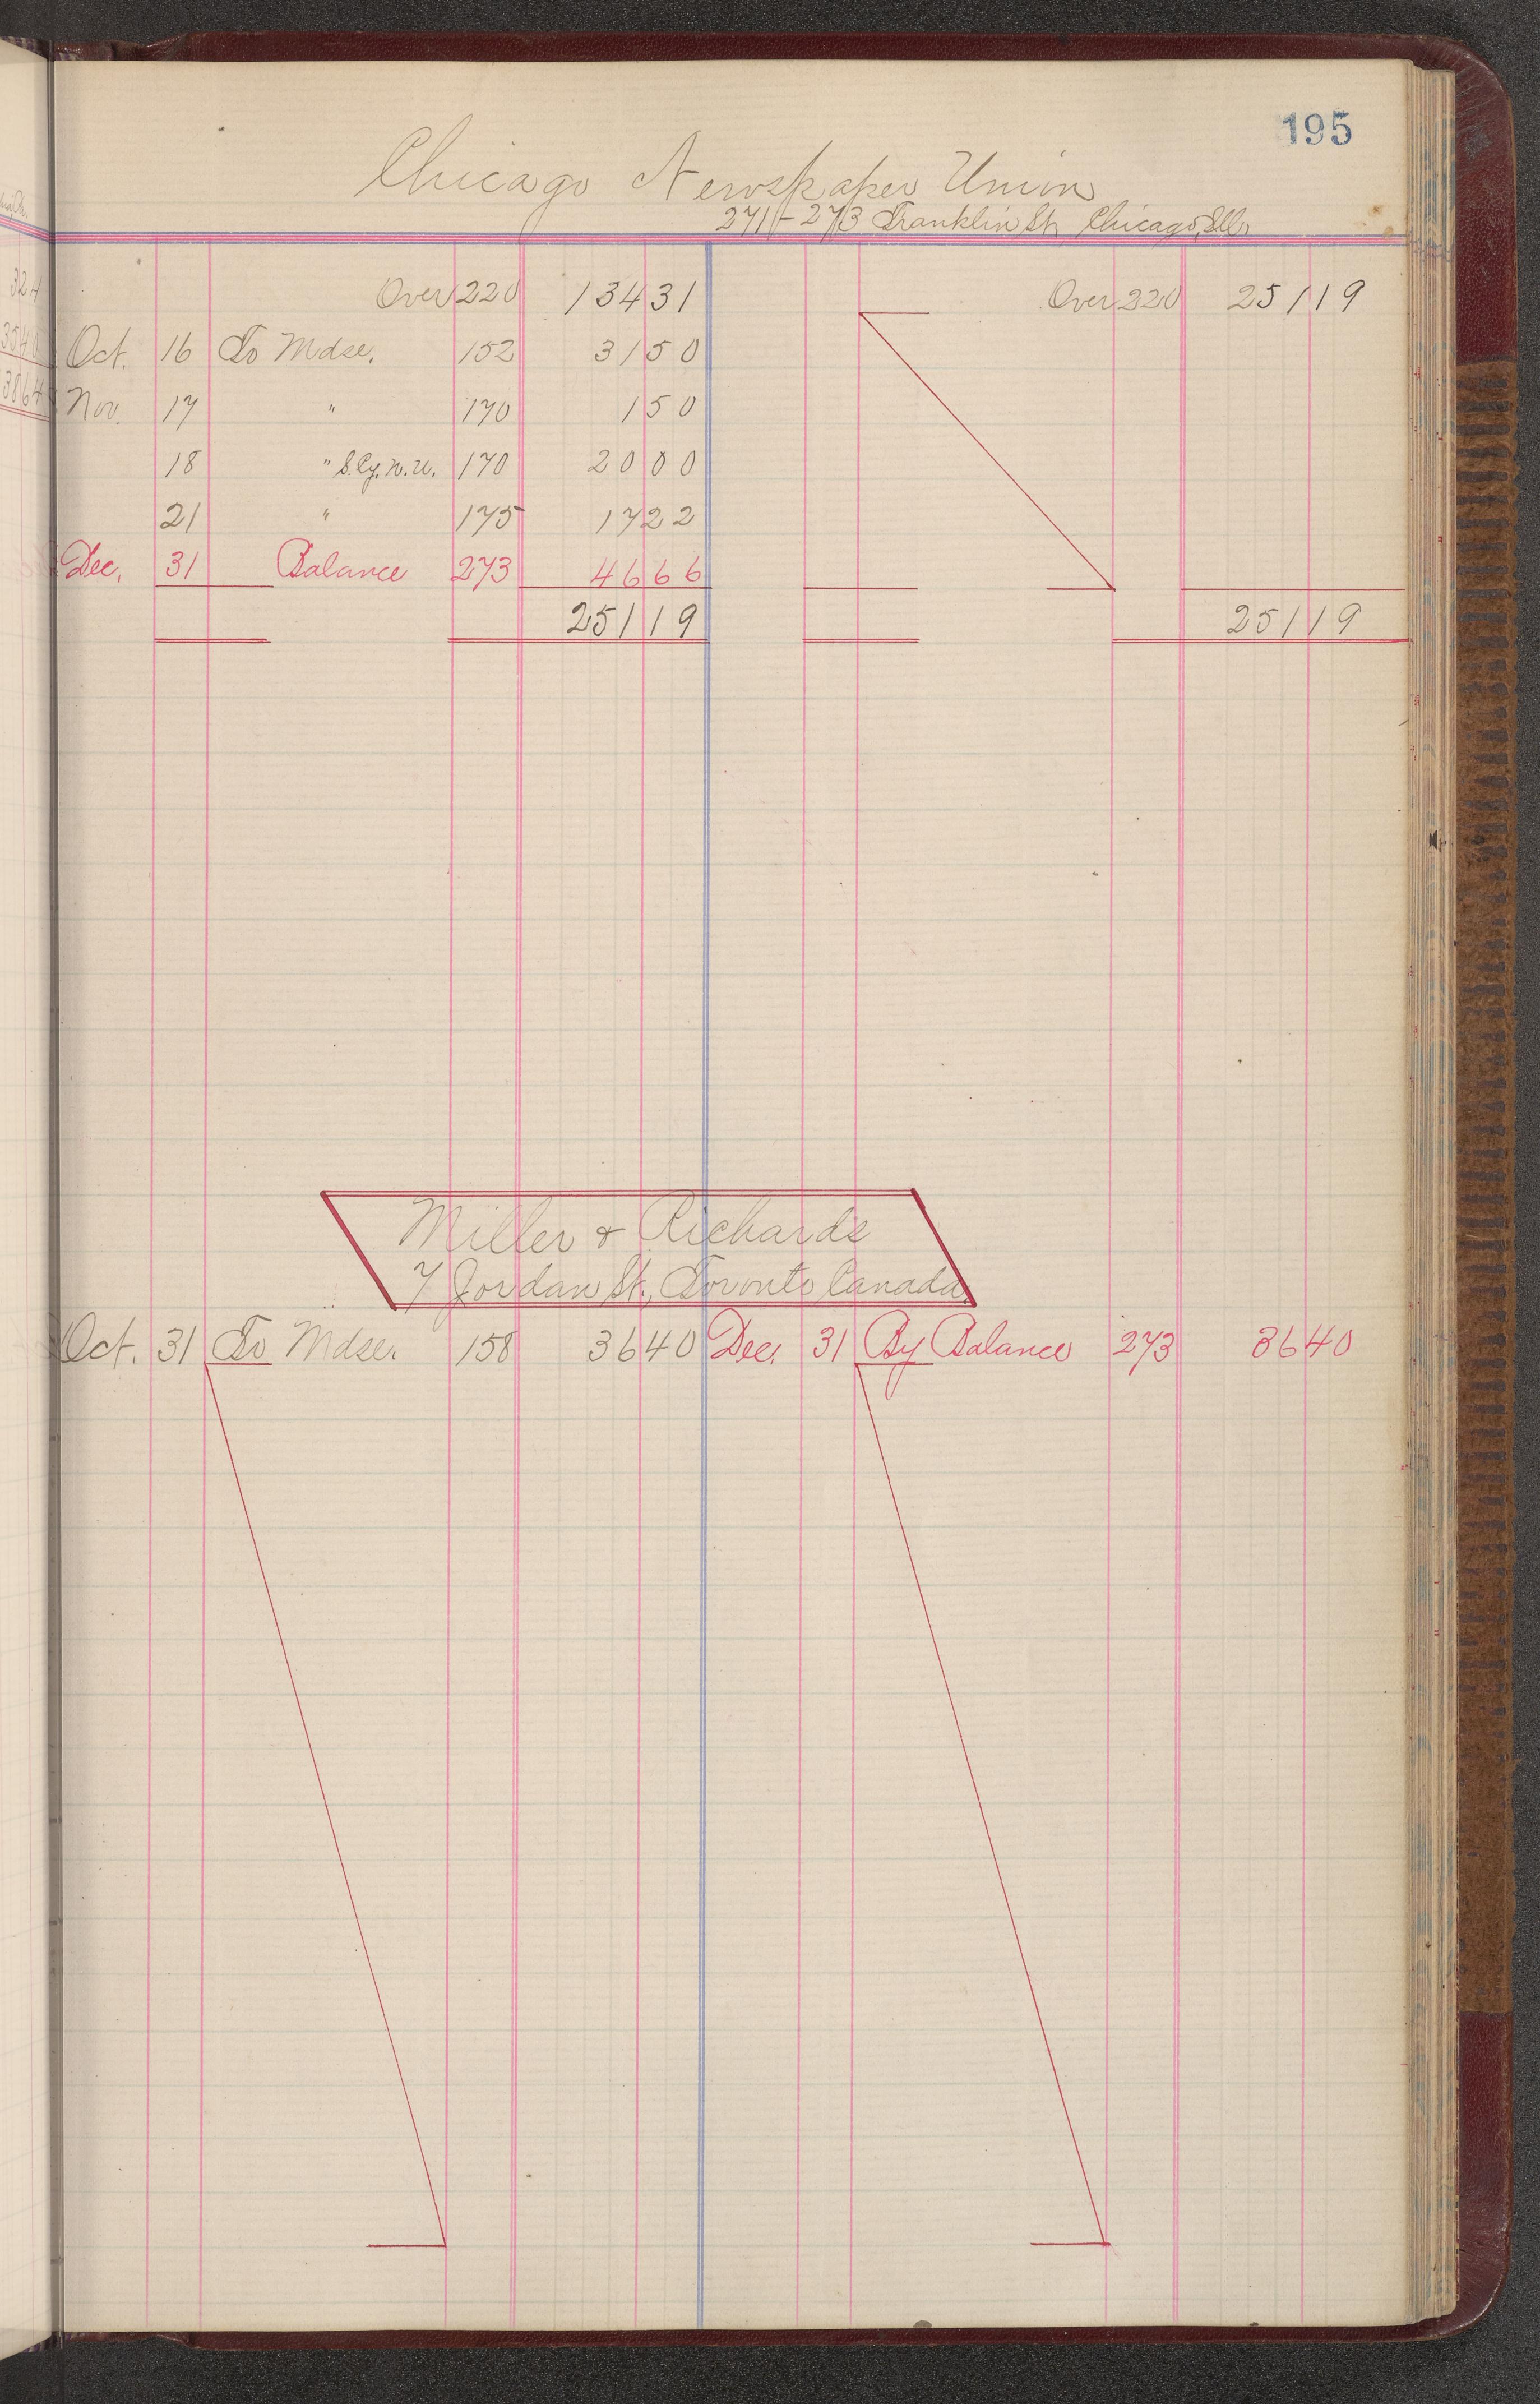 195
Chicago Newspaper Union
271-273 Franklin St. Chicago, Ills.
Over 220 134 31 Over 220 251 19
Oct. 16 To Mdse. 152 31 50
Nov. 17 " 170 1 50
18 " S.Cy.N.U. 170 20 00
21 " 175 17 22
Dec. 31 Balance 273 46 66
251 19 251 19
Miller & Richards
7 Jordan St., Toronto Canada.
Oct. 31 To Mdse. 158 36 40 Dec. 31 By Balance 273 36 40